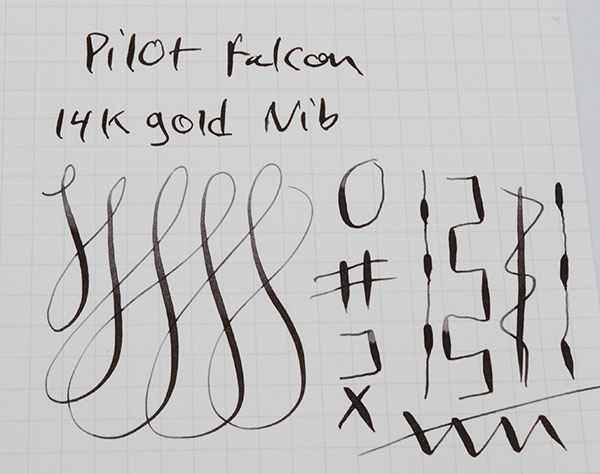 Pilot Falcon
14K gold Nib